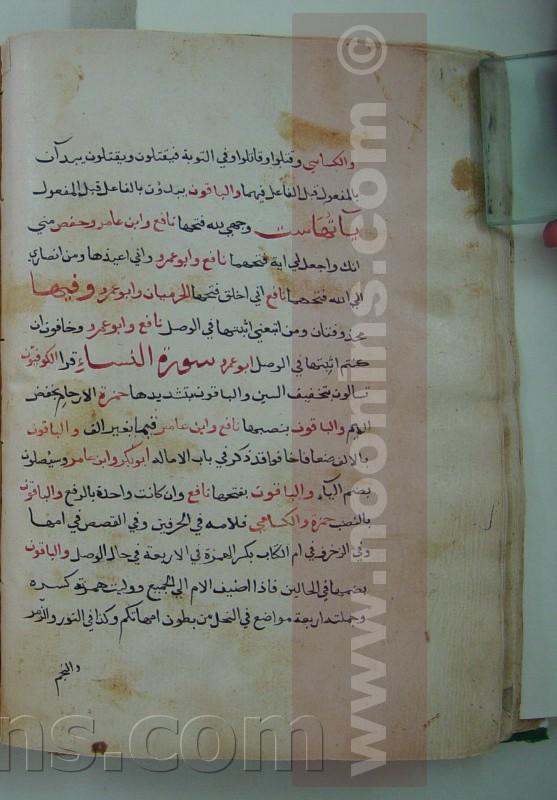 والكسائي وقتلوا وقاتلوا وفي التوبة فيقتلون ويقتلون يبدآن
بالمفعول قبل الفاعل فيهما والباقون يبدؤن بالفاعل قبل المفعول
يآتها ست وجهي لله فتحها نافع وابن عامر وحفص مني
انك واجعل لي اية فتحهما نافع وابو عمرو واني اعيذها ومن انصاري
الي الله فتحهما نافع اني اخلق فتحها الحرميان وابو عمرو وفيها
محذوفتان ومن اتبعني اثبتها في الوصل نافع وابو عمرو وخافون ان
كنتم اثبتها في الوصل ابو عمرو سورة النساء قرا الكوفيون
تسالون بتخفيف السين والباقون بتشديدها حمزة الارحام بخفض
الميم والباقون بنصبها نافع وابن عامر قيما بغير الف والباقون
بالالف ضعافا خافوا قد ذكر في باب الاماله ابو بكر وابن عامر وسيصلون
بضم اليآء والباقون بفتحها نافع وان كانت واحدة بالرفع والباقون
بالنصب حمزة والكسائي فلامه في الحرفين وفي القصص في امها
وفي الزخرف في ام الكتاب بكسر الهمزة في الاربعة في حال الوصل والباقون
بضمها في الحالين فاذا اضيف الام الي الجميع ووليت همزته كسره
وجملته اربعة مواضع في النحل من بطون امهاتكم وكذا في النور والزمر
والنجم
www.noorlns.com ©
ns.com